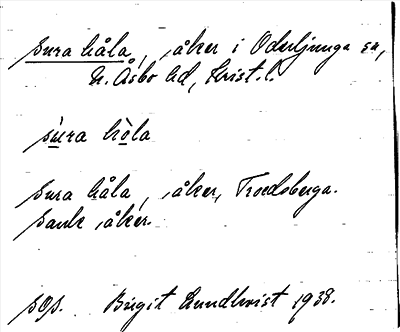 Sura håla, åker i Oderljunga sn,
N. Åsbo hd, Krist. l.
su̱ra hò̱la
Sura håla, åker, Troedsberga.
Sank åker.
sos. Birgit Lundkvist 1938.